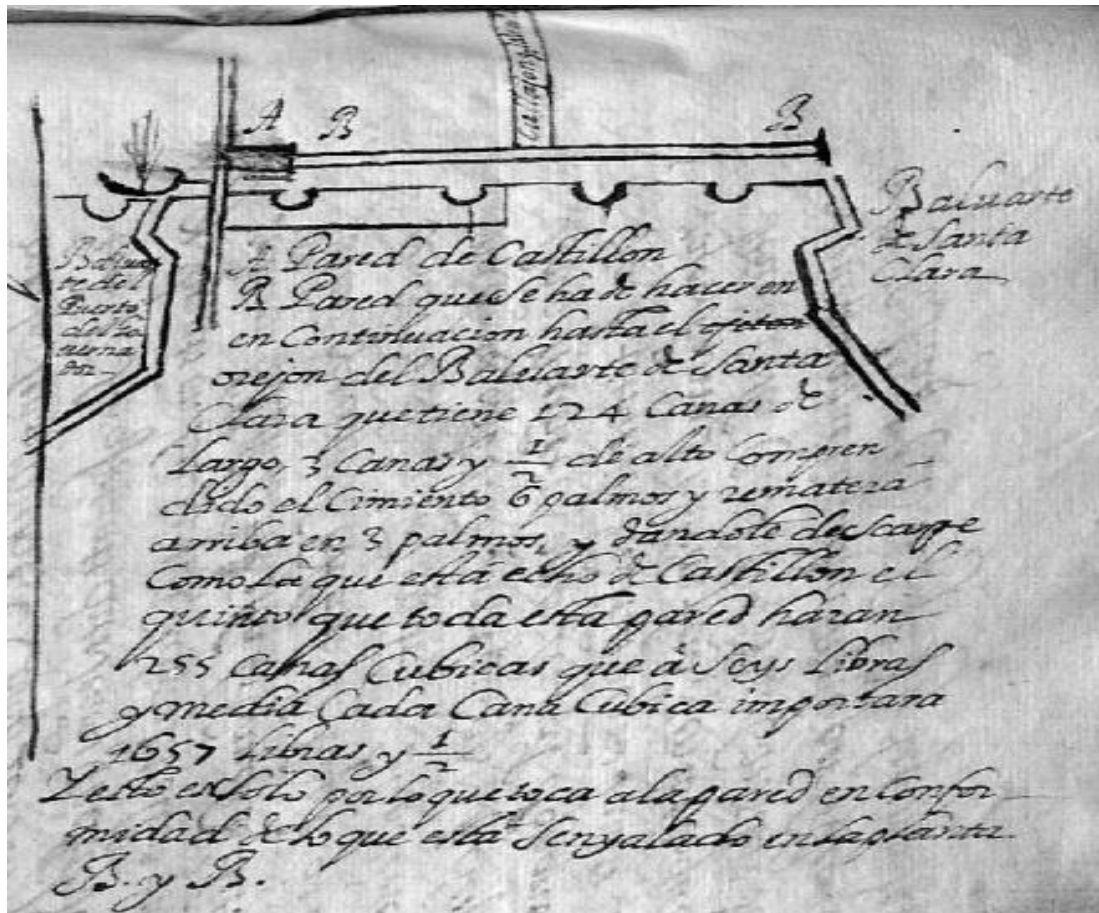 Callejon
A B B
Baluarte
de Santa
Clara
Baluar
te del
Puerto
del Go
verna
dor
A Pared de Castillon
B Pared que se ha de hacer en
en Continuacion hasta el
orejon del Baluarte de Santa
Clara que tiene 124 Canas de
Largo, 3 Canas y 1/2 de alto Compren
dido el Cimiento 6 palmos y rematera
arriba en 3 palmos, y dandole de scarpe
Como la que está echo de Castillon el
quinto que toda esta pared haran
255 Canas Cubicas que á seys Libras
y media Cada Cana Cubica importara
1657 Libras y 1/2
Y esto es solo por lo que toca a la pared en Confor
midad de lo que está senyalado en la planta
B. y B.